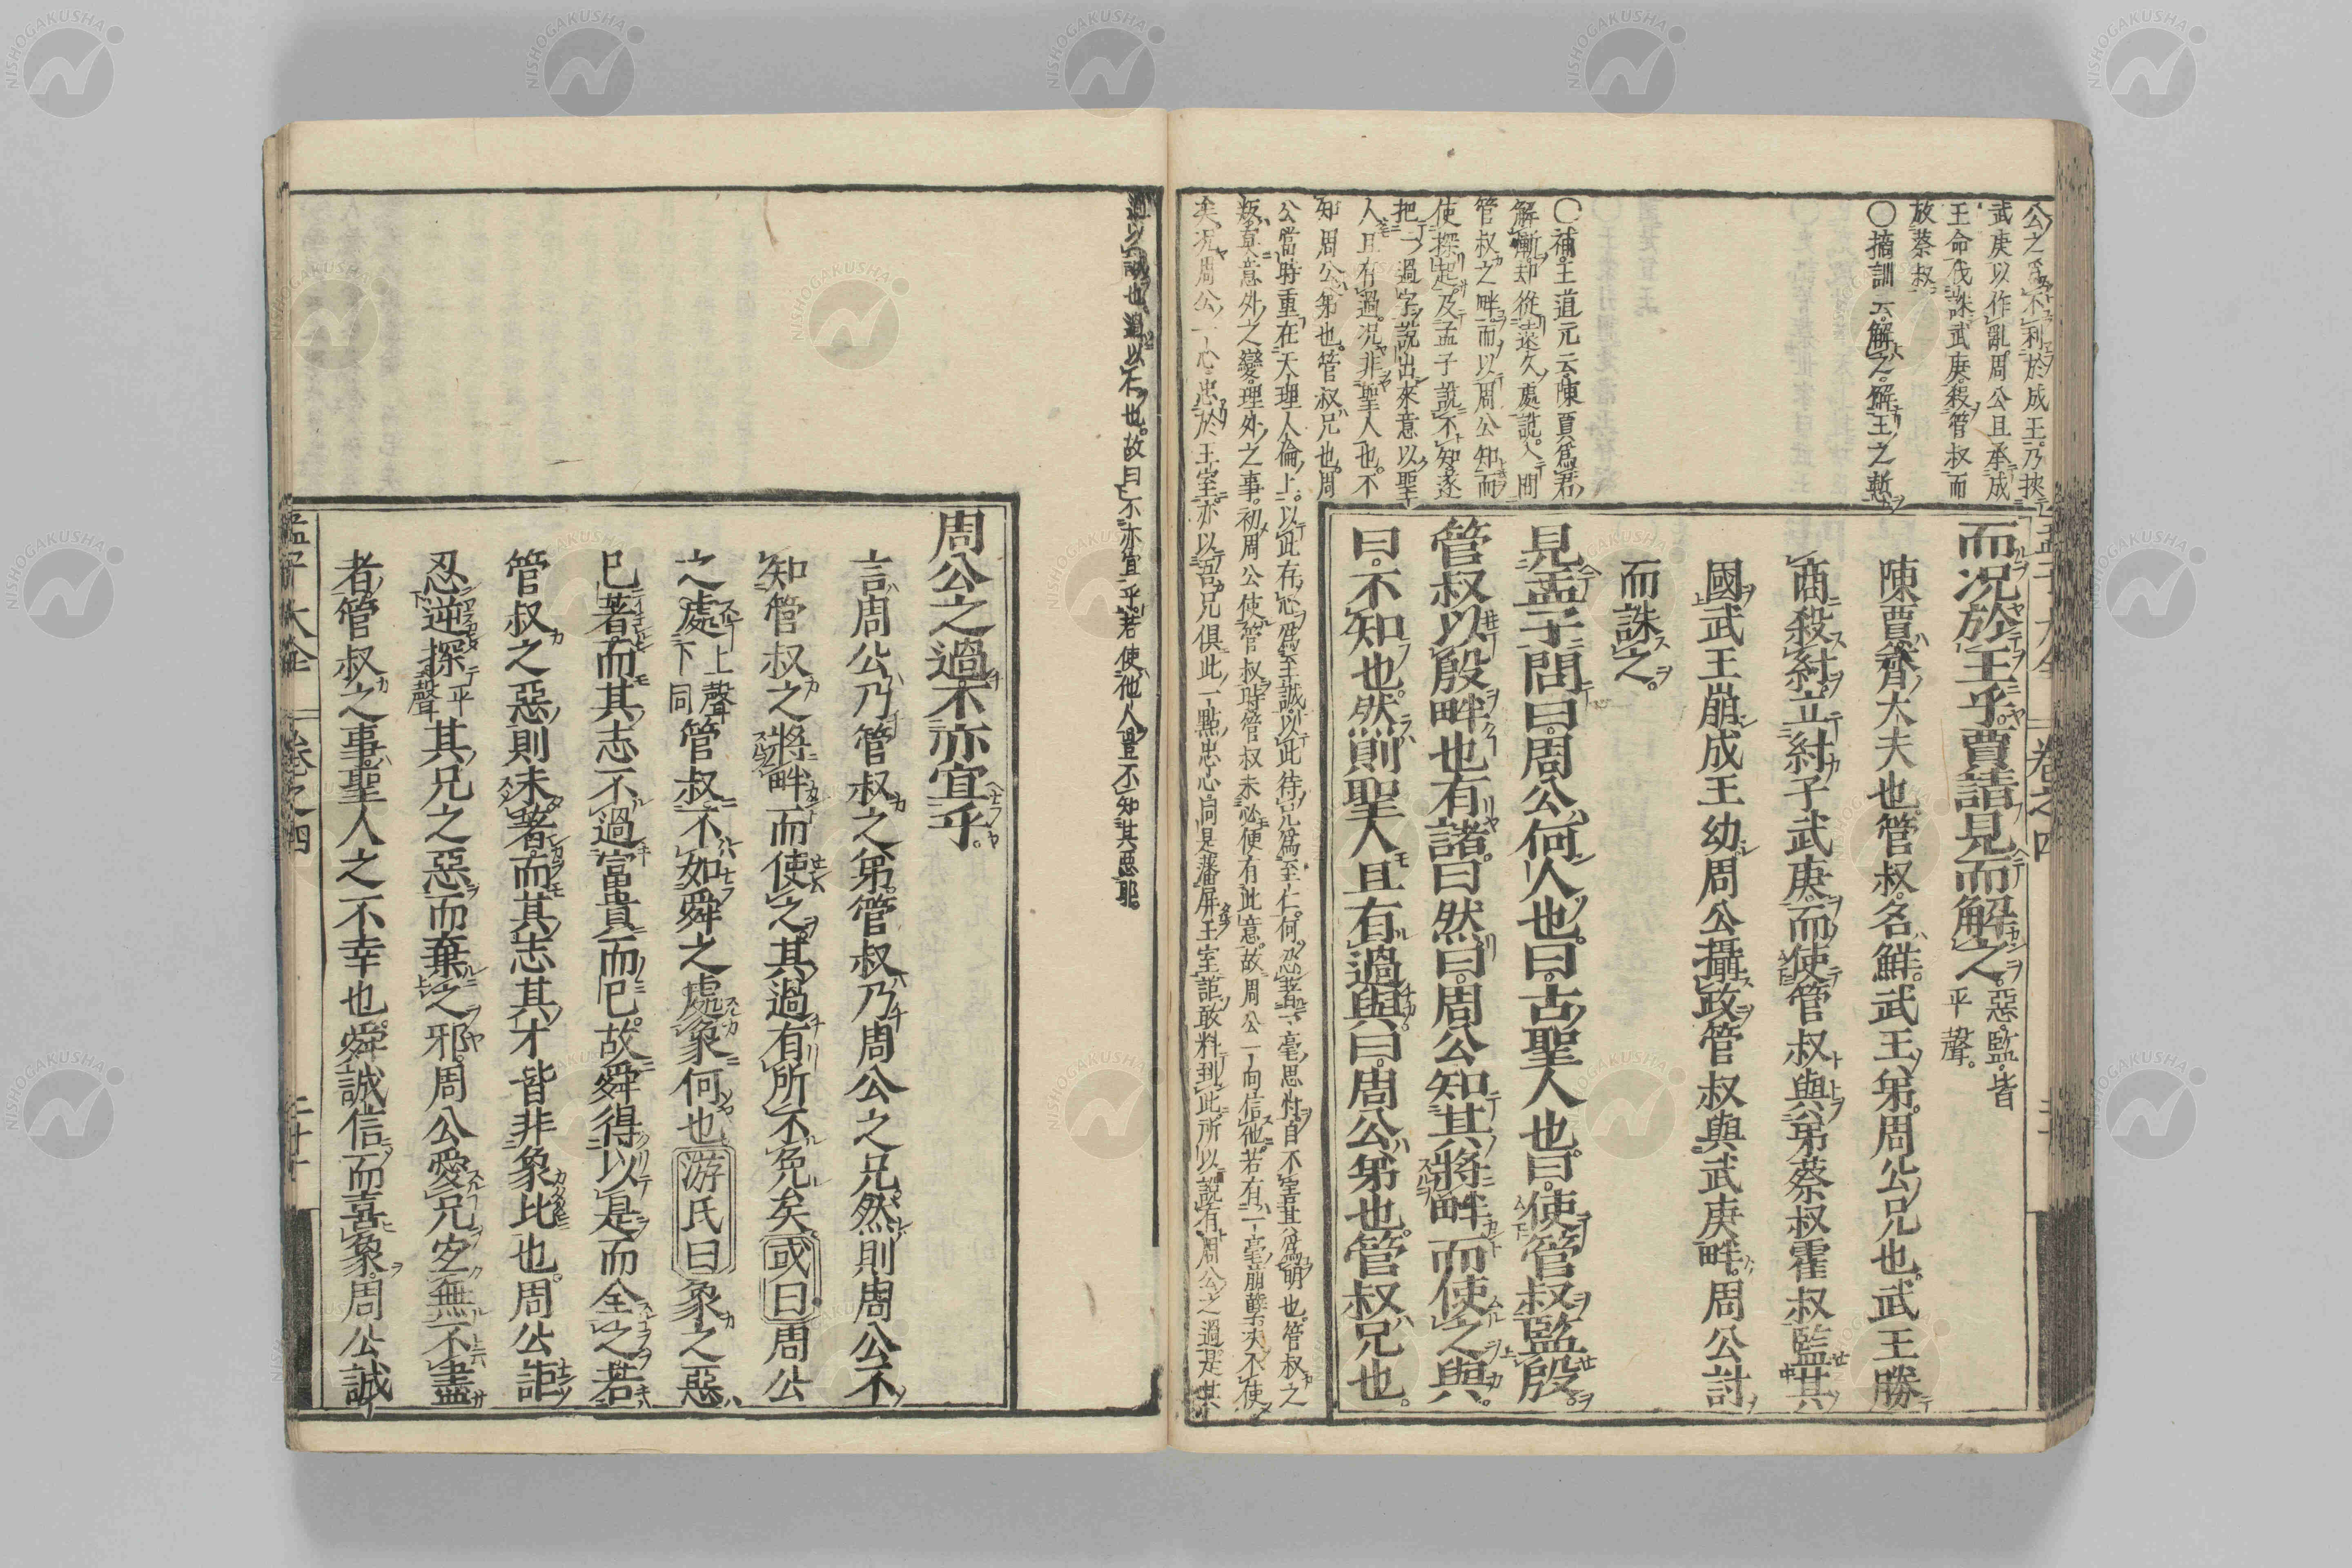 公之爲不利於成王乃挾
武庚以作亂周公且承成
王命伐誅武庚殺管叔而
放蔡叔
〇摘訓云解之解王之慙
〇補王道元云陳賈爲君
解慙却從遠久處説人問
管叔之畔而以周公知而
使探起及孟子説不知遂
把一過字説出來意以聖
人且有過况非聖人也不
知周公弟也管叔兄也周
公當時重在天理人倫上以此存心爲至誠以此待兄爲至仁何忍著一毫思忖自不害其爲明也管叔之
叛莫意外之變理外之事初周公使管叔時管叔未必便有此意故周公一向信他若有一毫崩孽决不使
矣况周公一心忠於王室亦以吾兄俱此一點忠心同是藩屏王室詎敢料到此所以説有周公之過是其
而况於王乎賈請見而解之惡監皆平聲
陳賈齊大夫也管叔名鮮武王弟周公兄也武王勝
商殺紂立紂子武庚而使管叔與弟蔡叔霍叔監其
國武王崩成王幼周公攝政管叔與武庚畔周公討
而誅之
見孟子問曰周公何人也曰古聖人也曰使管叔監殷
管叔以殷畔也有諸曰然曰周公知其將畔而使之與
曰不知也然則聖人且有過與曰周公弟也管叔兄也
過以誠也過以不也故曰不亦宜乎若使他人豈不知其惡耶
周公之過不亦宜乎
言周公乃管叔之弟管叔乃周公之兄然則周公不
知管叔之將畔而使之其過有所不免矣或曰周公
之處上聲下同管叔不如舜之處象何也游氏曰象之惡
已著而其志不過富貴而已故舜得以是而全之若
管叔之惡則未著而其志其才皆非象比也周公詎
忍逆探平聲其兄之惡而棄之邪周公愛兄宜無不盡
者管叔之事聖人之不幸也舜誠信而喜象周公誠
孟子大全 卷之四 二十一